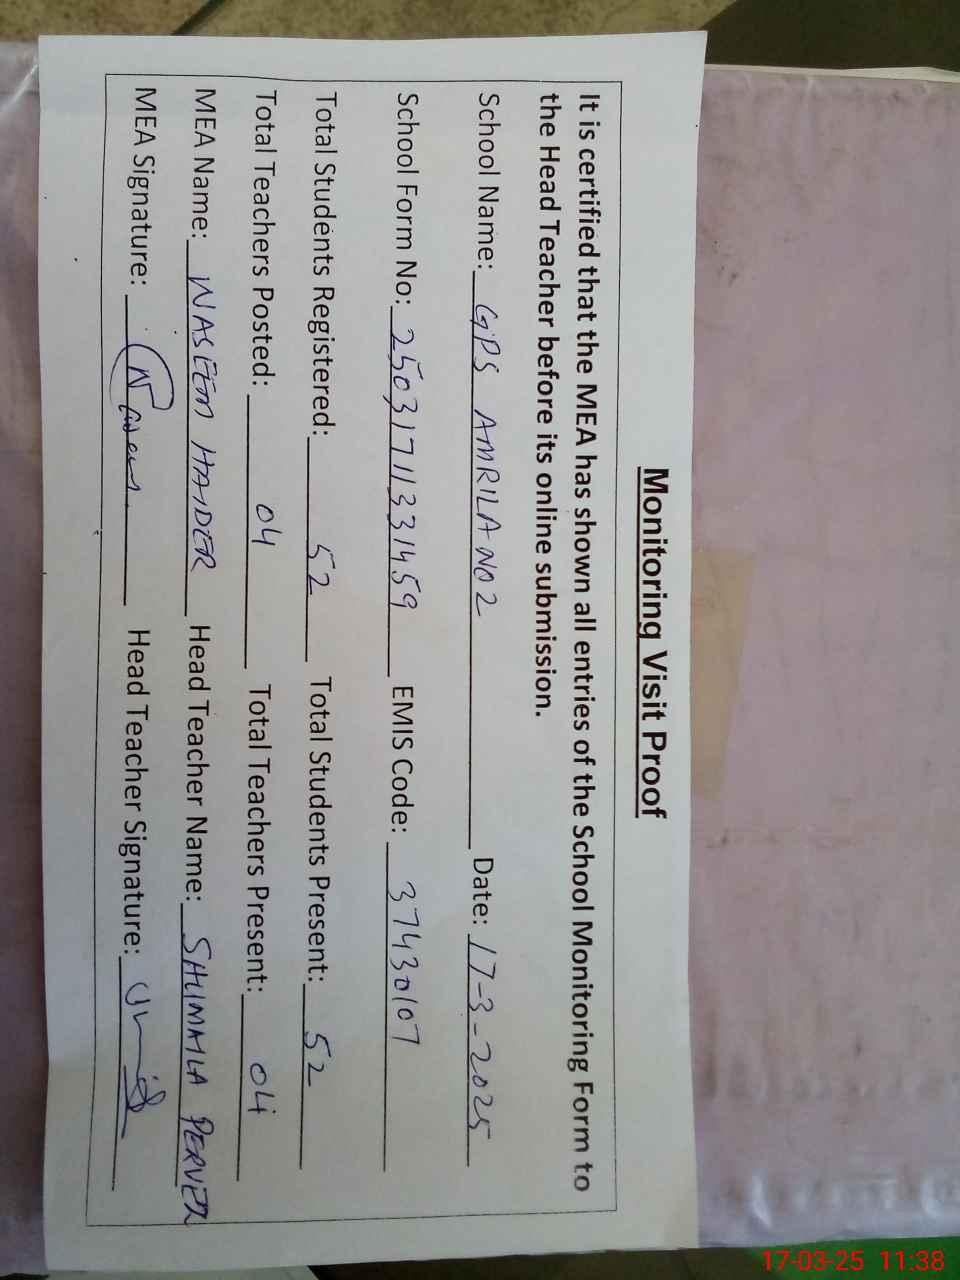 Monitoring Visit Proof
It is certified that the MEA has shown all entries of the School Monitoring Form to
the Head Teacher before its online submission.
School Name: GPS AMRILA NO 2 Date: 17-3-2025
School Form No: 25031711331459 EMIS Code: 37430107
Total Students Registered: 52 Total Students Present: 52
Total Teachers Posted: 04 Total Teachers Present: 04
MEA Name: WASEEM HAIDER Head Teacher Name: SHUMAILA
MEA Signature: Head Teacher Signature:
17-03-25 11:38